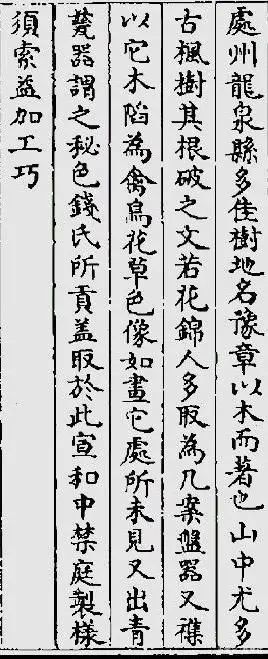 處州龍泉縣多佳樹地名豫章以木而著也山中尤多
古楓樹其根破之文若花錦人多取為几案盤器又襍
以它木陷為禽鳥花草色像如畫它處所未見又出青
甆器謂之秘色錢氏所貢盖取於此宣和中禁庭製樣
須索益加工巧